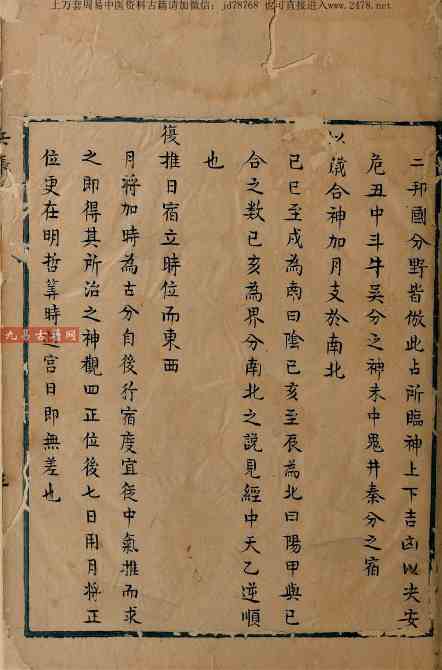 上万套周易中医资料古籍请加微信：jd78768 也可直接进入www.2478.net
二邦國分野皆倣此占所臨神上下吉凶以决安
危丑中斗牛吴分之神未中鬼井秦分之宿
以歲合神加月支於南北
己巳至戌為南曰陰己亥至辰為北曰陽甲與己
合之數巳亥為界分南北之説見經中天乙逆順
也
復推日宿立時位而東西
月將加時為古分自後行宿度宜從中氣推而求
之即得其所治之神觀四正位後七日用月將正
位更在明哲筭時之宫日即無差也
九易古籍网